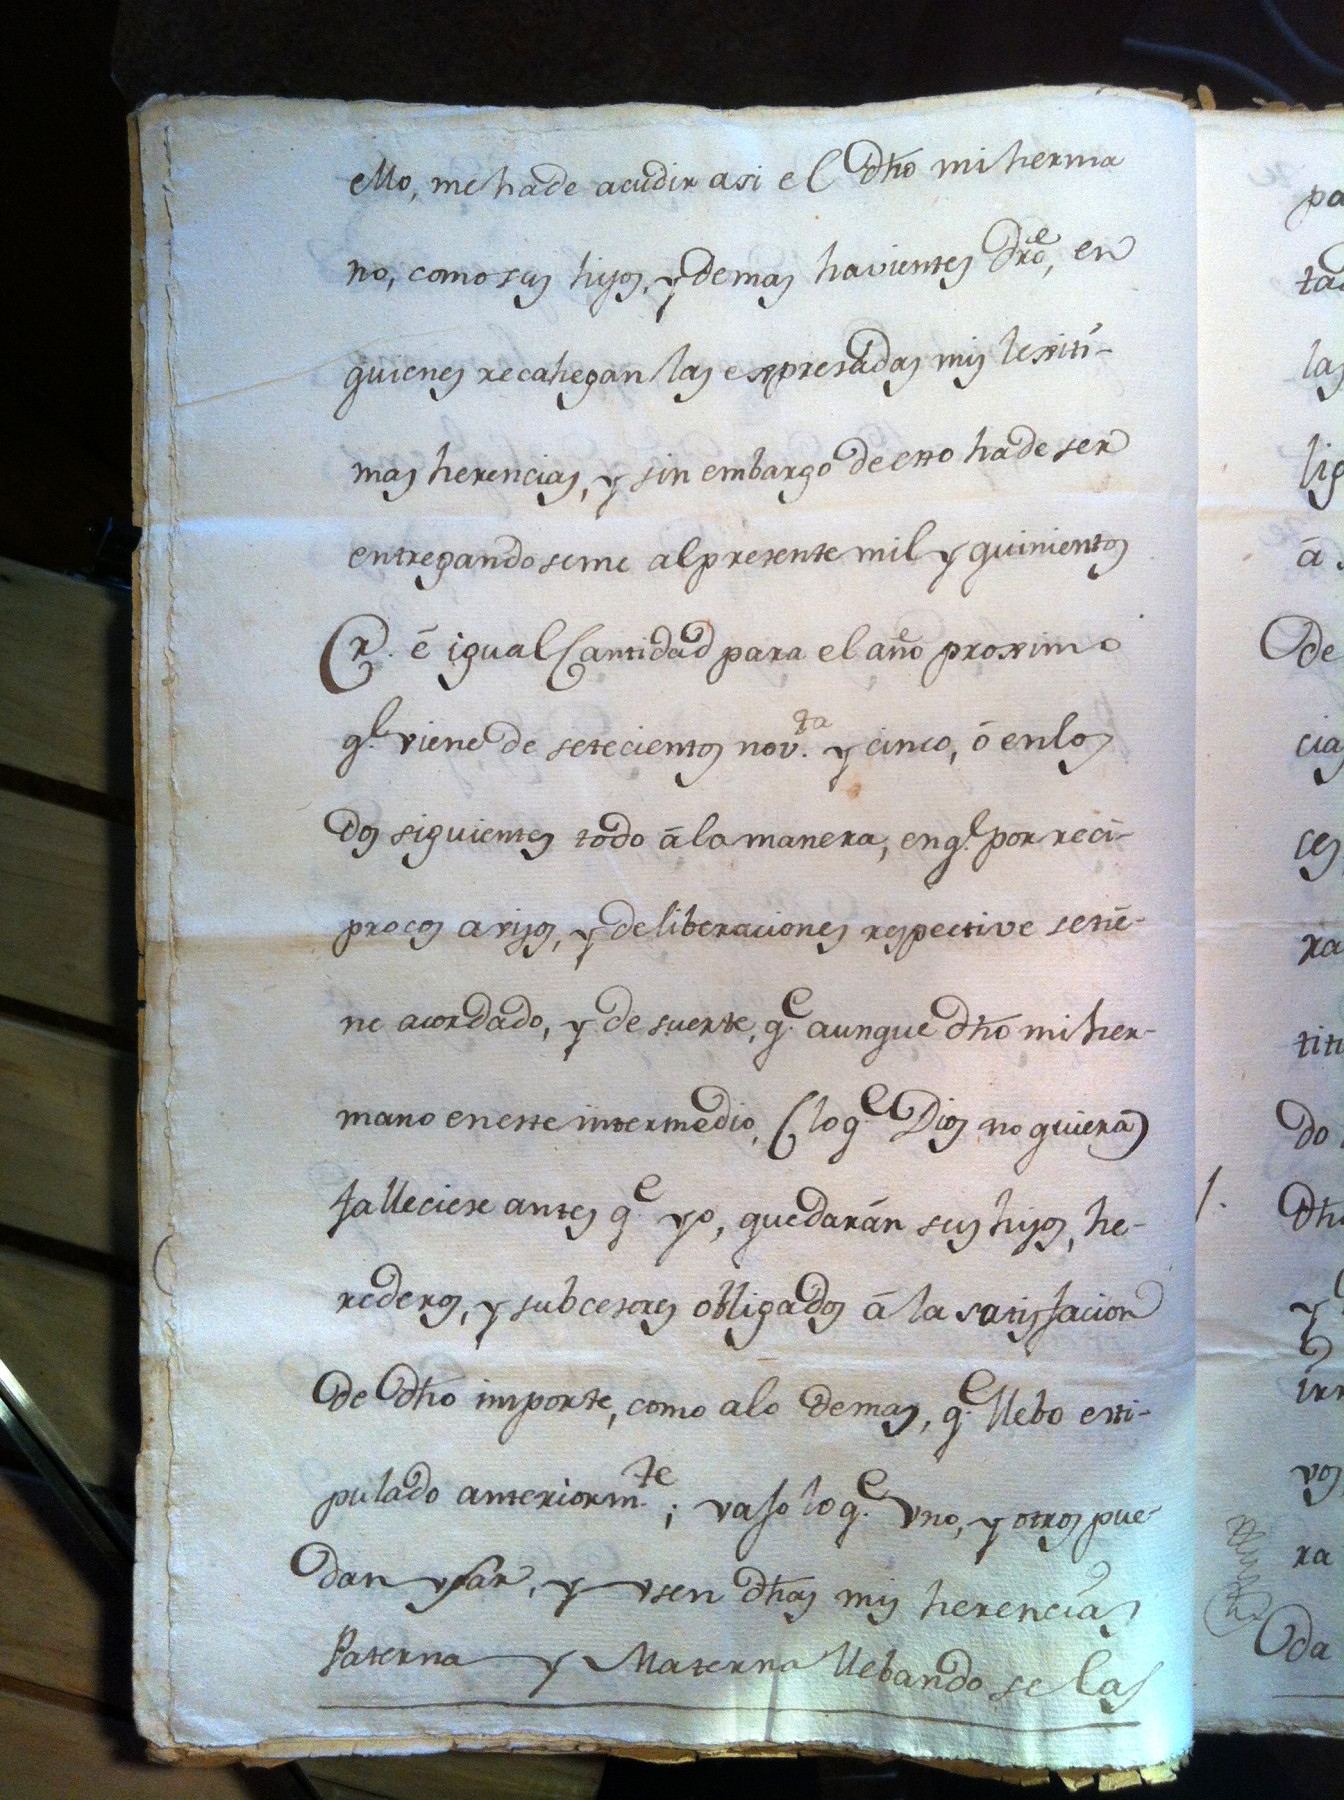 ello, me ha de acudir asi el dho mi herma
no, como sus hijos, y demas havientes dro, en
quienes recahegan las expresadas mis lexiti-
mas herencias, y sin embargo de esto ha de ser
entregandoseme al presente mil y quinientos
é igual Cantidad para el año proximo
qe. viene de setecientos nov.ta y cinco, ó en los
dos siguientes todo á la manera, en qe. por reci-
procos avisos, y deliberaciones respective se tie-
ne acordado, y de suerte, qe. aunque dho mi her-
mano en este intermedio, (lo qe. Dios no quiera)
falleciese antes qe. yo, quedarán sus hijos, he-
rederos, y subcesores obligados á la satisfacion
de dho importe, como a lo demas, qe. llebo esti-
pulado anteriorm.te; vajo lo qe. vno, y otros pue-
dan vsar, y vsen dhas mis herencias
Paterna y Materna llebandose las
pa
la
lig
á
de
cia
ces
ra
tit
do
dh
y
irr
vos
ra
da